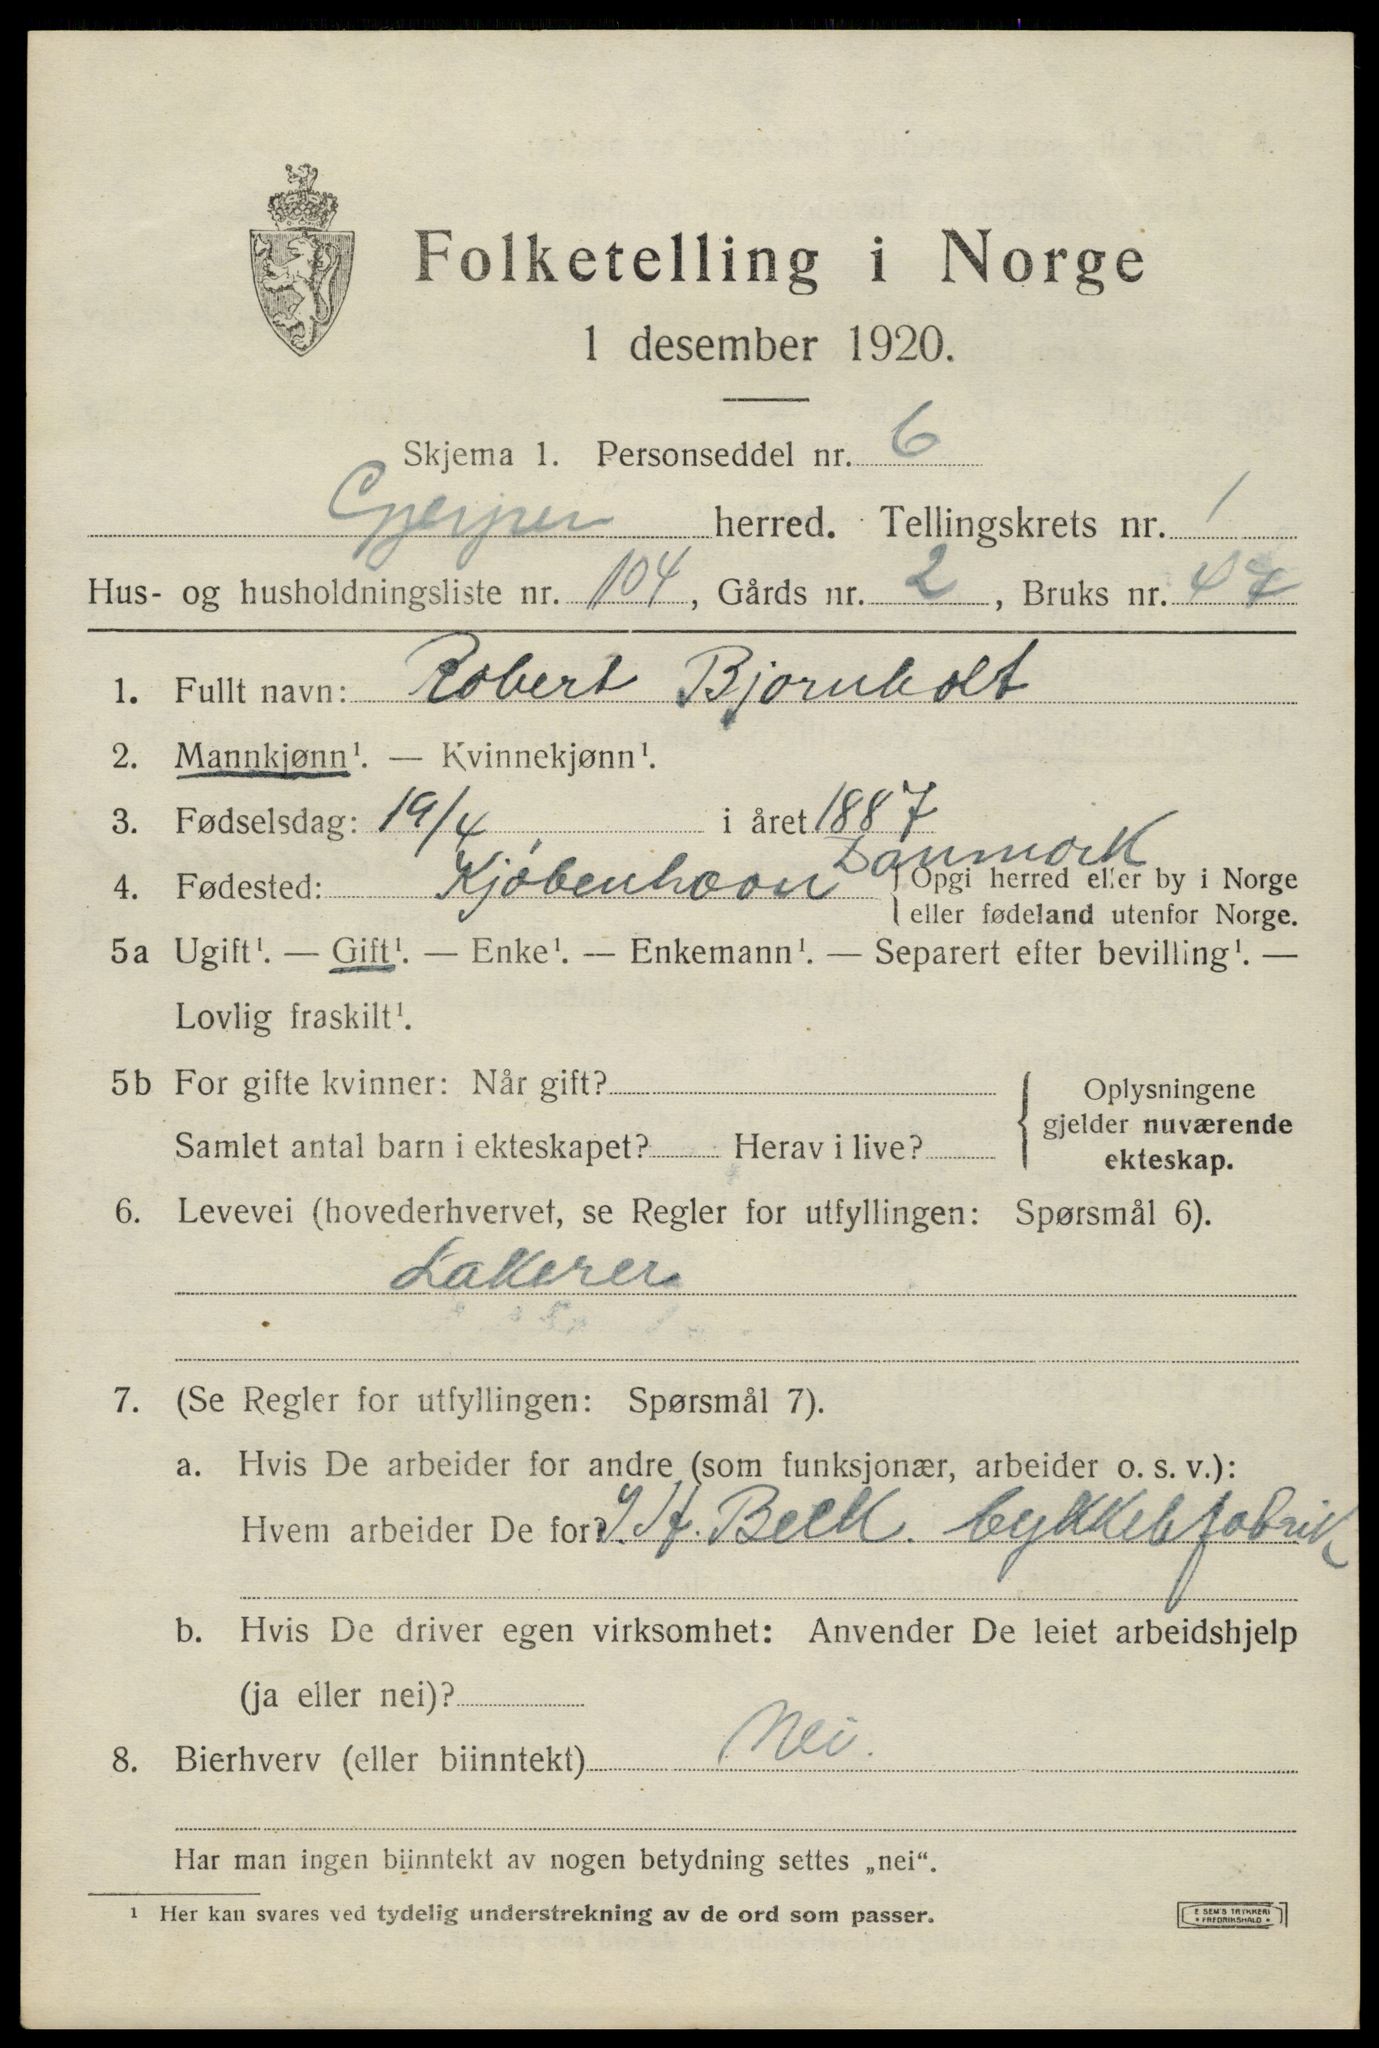 Folketelling i Norge
1 desember 1920.
Skjema 1. Personseddel nr. 6
Gjerpen herred. Tellingskrets nr. 1
Hus- og husholdningsliste nr. 104, Gårds nr. 2, Bruks nr. 47
1. Fullt navn: Robert Bjornholt
2. Mannkjønn¹. — Kvinnekjønn¹.
3. Fødselsdag: 19/4 i året 1887
Danmork
4. Fødested: Kjöbenhavn { Opgi herred eller by i Norge
eller fødeland utenfor Norge.
5a Ugift¹. — Gift¹. — Enke¹. — Enkemann¹. — Separert efter bevilling¹. —
Lovlig fraskilt¹.
5b For gifte kvinner: Når gift?
Samlet antal barn i ekteskapet? Herav i live?
{ Oplysningene
gjelder nuværende
ekteskap.
6. Levevei (hovederhvervet, se Regler for utfyllingen: Spørsmål 6).
Lakerer
7. (Se Regler for utfyllingen: Spørsmål 7).
a. Hvis De arbeider for andre (som funksjonær, arbeider o. s. v.):
Hvem arbeider De for? J. H. Beck. Cykkelfabrik
b. Hvis De driver egen virksomhet: Anvender De leiet arbeidshjelp
(ja eller nei)?
8. Bierhverv (eller biinntekt) Nei.
Har man ingen biinntekt av nogen betydning settes „nei“.
¹ Her kan svares ved tydelig understrekning av de ord som passer.
E SEM'S TRYKKERI
* FREDRIKSHALD *